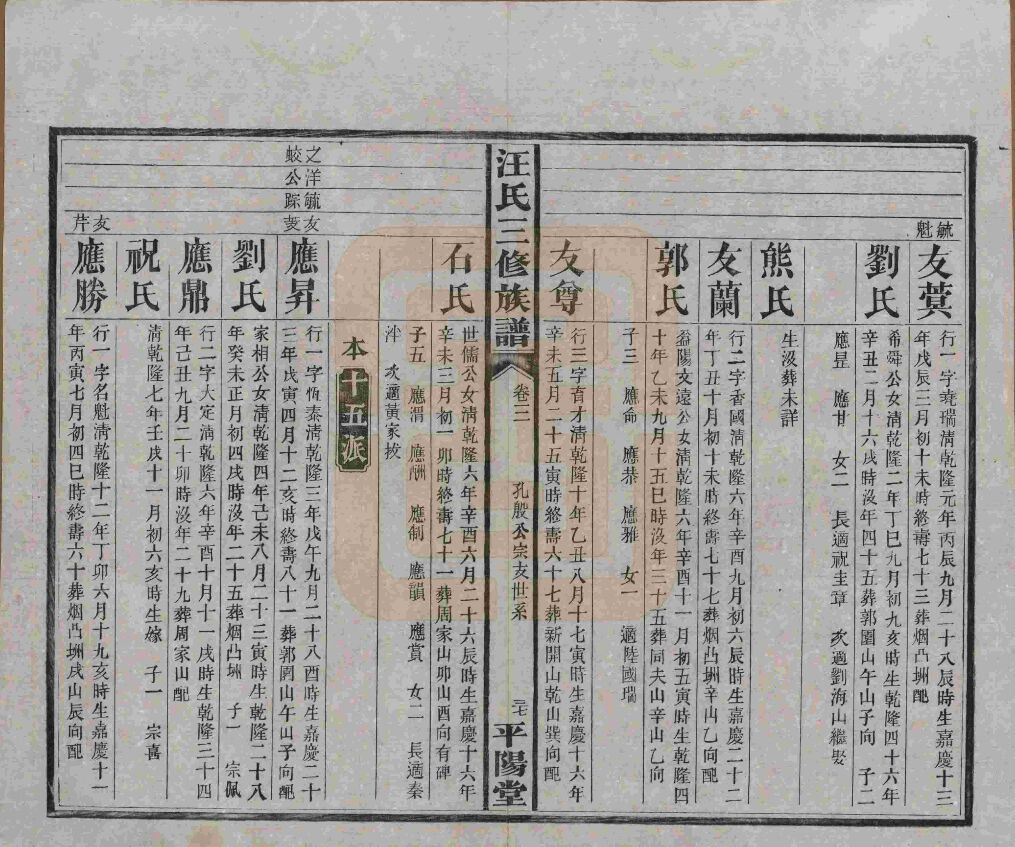 毓
魁
友蓂
行一字堯瑞清乾隆元年丙辰九月二十八辰時生嘉慶十三
年戊辰三月初十未時終壽七十三葬烟凸坳配
劉氏
希舜公女清乾隆二年丁巳九月初九亥時生乾隆四十六年
辛丑二月十六戌時沒年四十五葬郭園山午山子向 子二
應昱 應甘 女二 長適祝圭章 次適劉海山繼娶
熊氏
生沒葬未詳
友蘭
行二字香國清乾隆六年辛酉九月初六辰時生嘉慶二十二
年丁丑十月初十未時終壽七十七葬烟凸坳辛山乙向配
郭氏
益陽文遠公女清乾隆六年辛酉十一月初五寅時生乾隆四
十年乙未九月十五巳時沒年三十五葬同夫山辛山乙向
子三 應命 應恭 應雅 女一 適陸國瑞
友尊
行三字育才清乾隆十年乙丑八月十七寅時生嘉慶十六年
辛未五月二十五寅時終壽六十七葬新開山乾山巽向配
汪氏三修族譜
卷三
孔殷公宗友世系
三七
平陽堂
石氏
世儒公女清乾隆六年辛酉六月二十六辰時生嘉慶十六年
辛未三月初一卯時終壽七十一葬周家山卯山酉向有碑
子五 應渭 應酬 應制 應韻 應賞 女二 長適秦
泮 次適黃家拔
本十五派
之洋毓友
蛟公踪芰
應昇
行一字恆泰清乾隆三年戊午九月二十八酉時生嘉慶二十
三年戊寅四月十二亥時終壽八十一葬郭園山午山子向配
劉氏
家相公女清乾隆四年己未八月二十三寅時生乾隆二十八
年癸未正月初四戌時沒年二十五葬烟凸坳 子一 宗佩
應鼎
行二字大定清乾隆六年辛酉十月十一戌時生乾隆三十四
年己丑九月二十卯時沒年二十九葬周家山配
祝氏
清乾隆七年壬戌十一月初六亥時生嫁 子一 宗喜
友
芹
應勝
行一字名魁清乾隆十二年丁卯六月十九亥時生嘉慶十一
年丙寅七月初四巳時終壽六十葬烟凸坳戌山辰向配